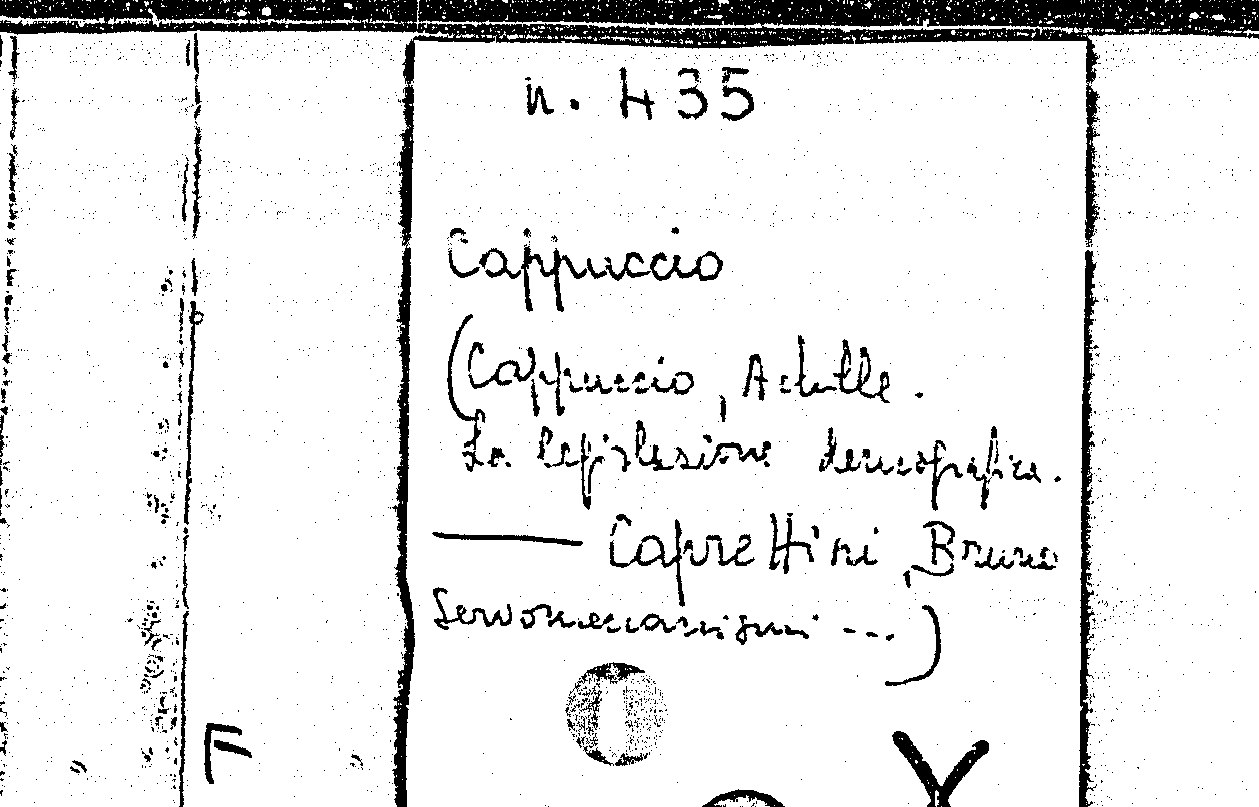 n. 435
Cappuccio
(Cappuccio, Achille.
La legislazione demografica.
— Caprettini, Bruno
Servomeccanismi ---)
F
Y